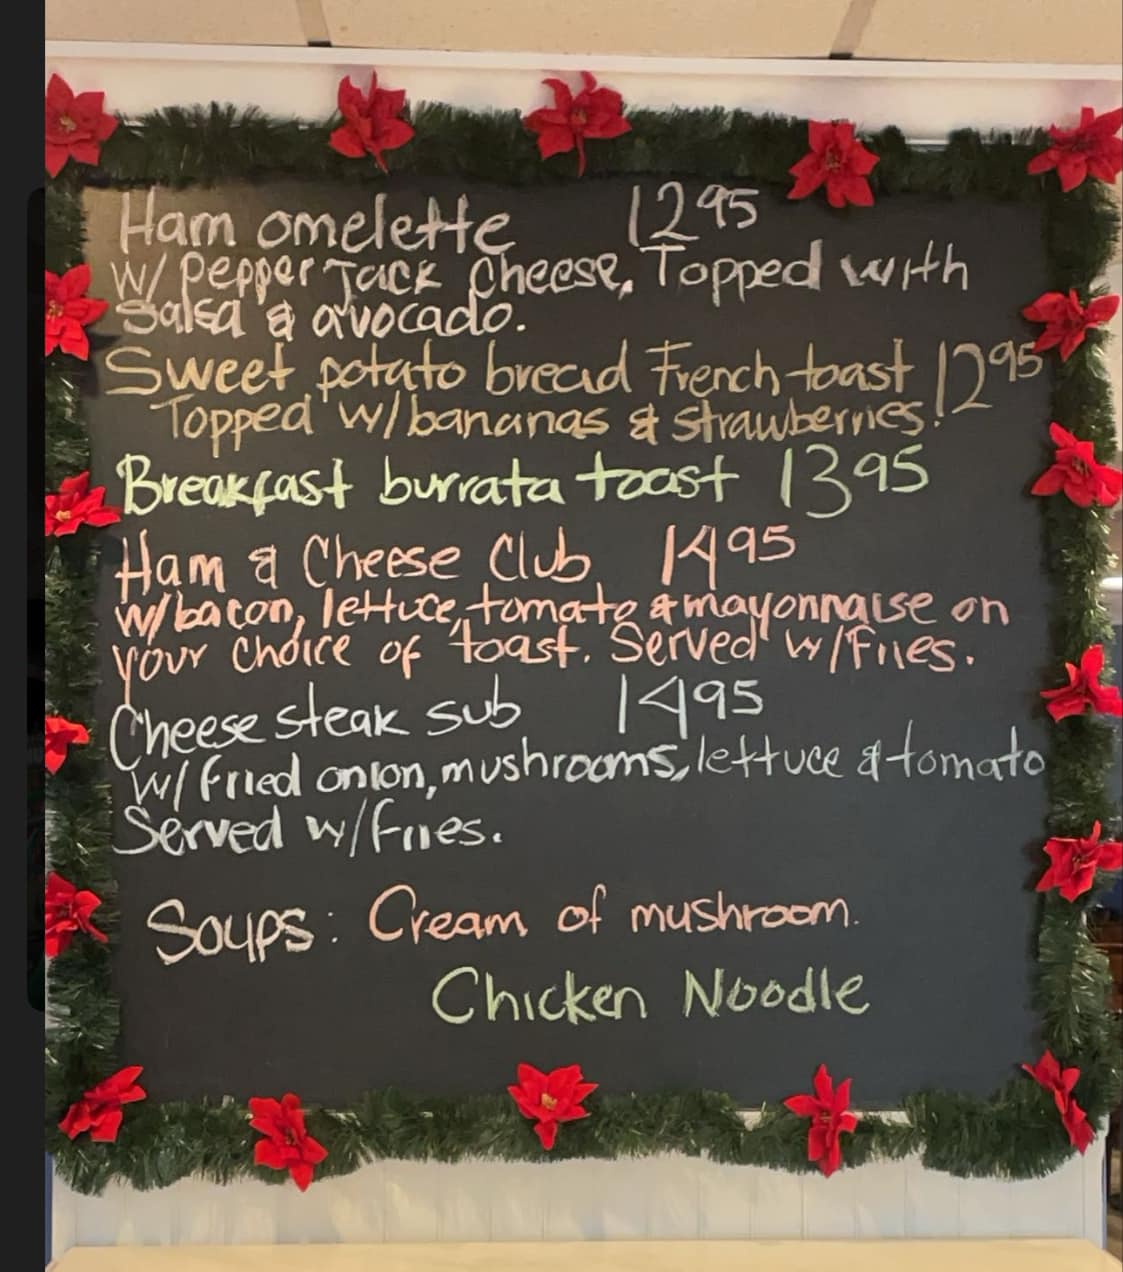 Ham omelette 12 95
w/ pepper Jack cheese, Topped with
salsa & avocado.
Sweet potato bread French toast 12 95
Topped w/bananas & strawberries.
Breakfast burrata toast 13 95
Ham & Cheese Club 14 95
w/bacon, lettuce, tomato & mayonnaise on
your choice of toast. Served w/Fries.
Cheese steak sub 14 95
w/ fried onion, mushrooms, lettuce & tomato
Served w/Fries.
Soups: Cream of mushroom.
Chicken Noodle